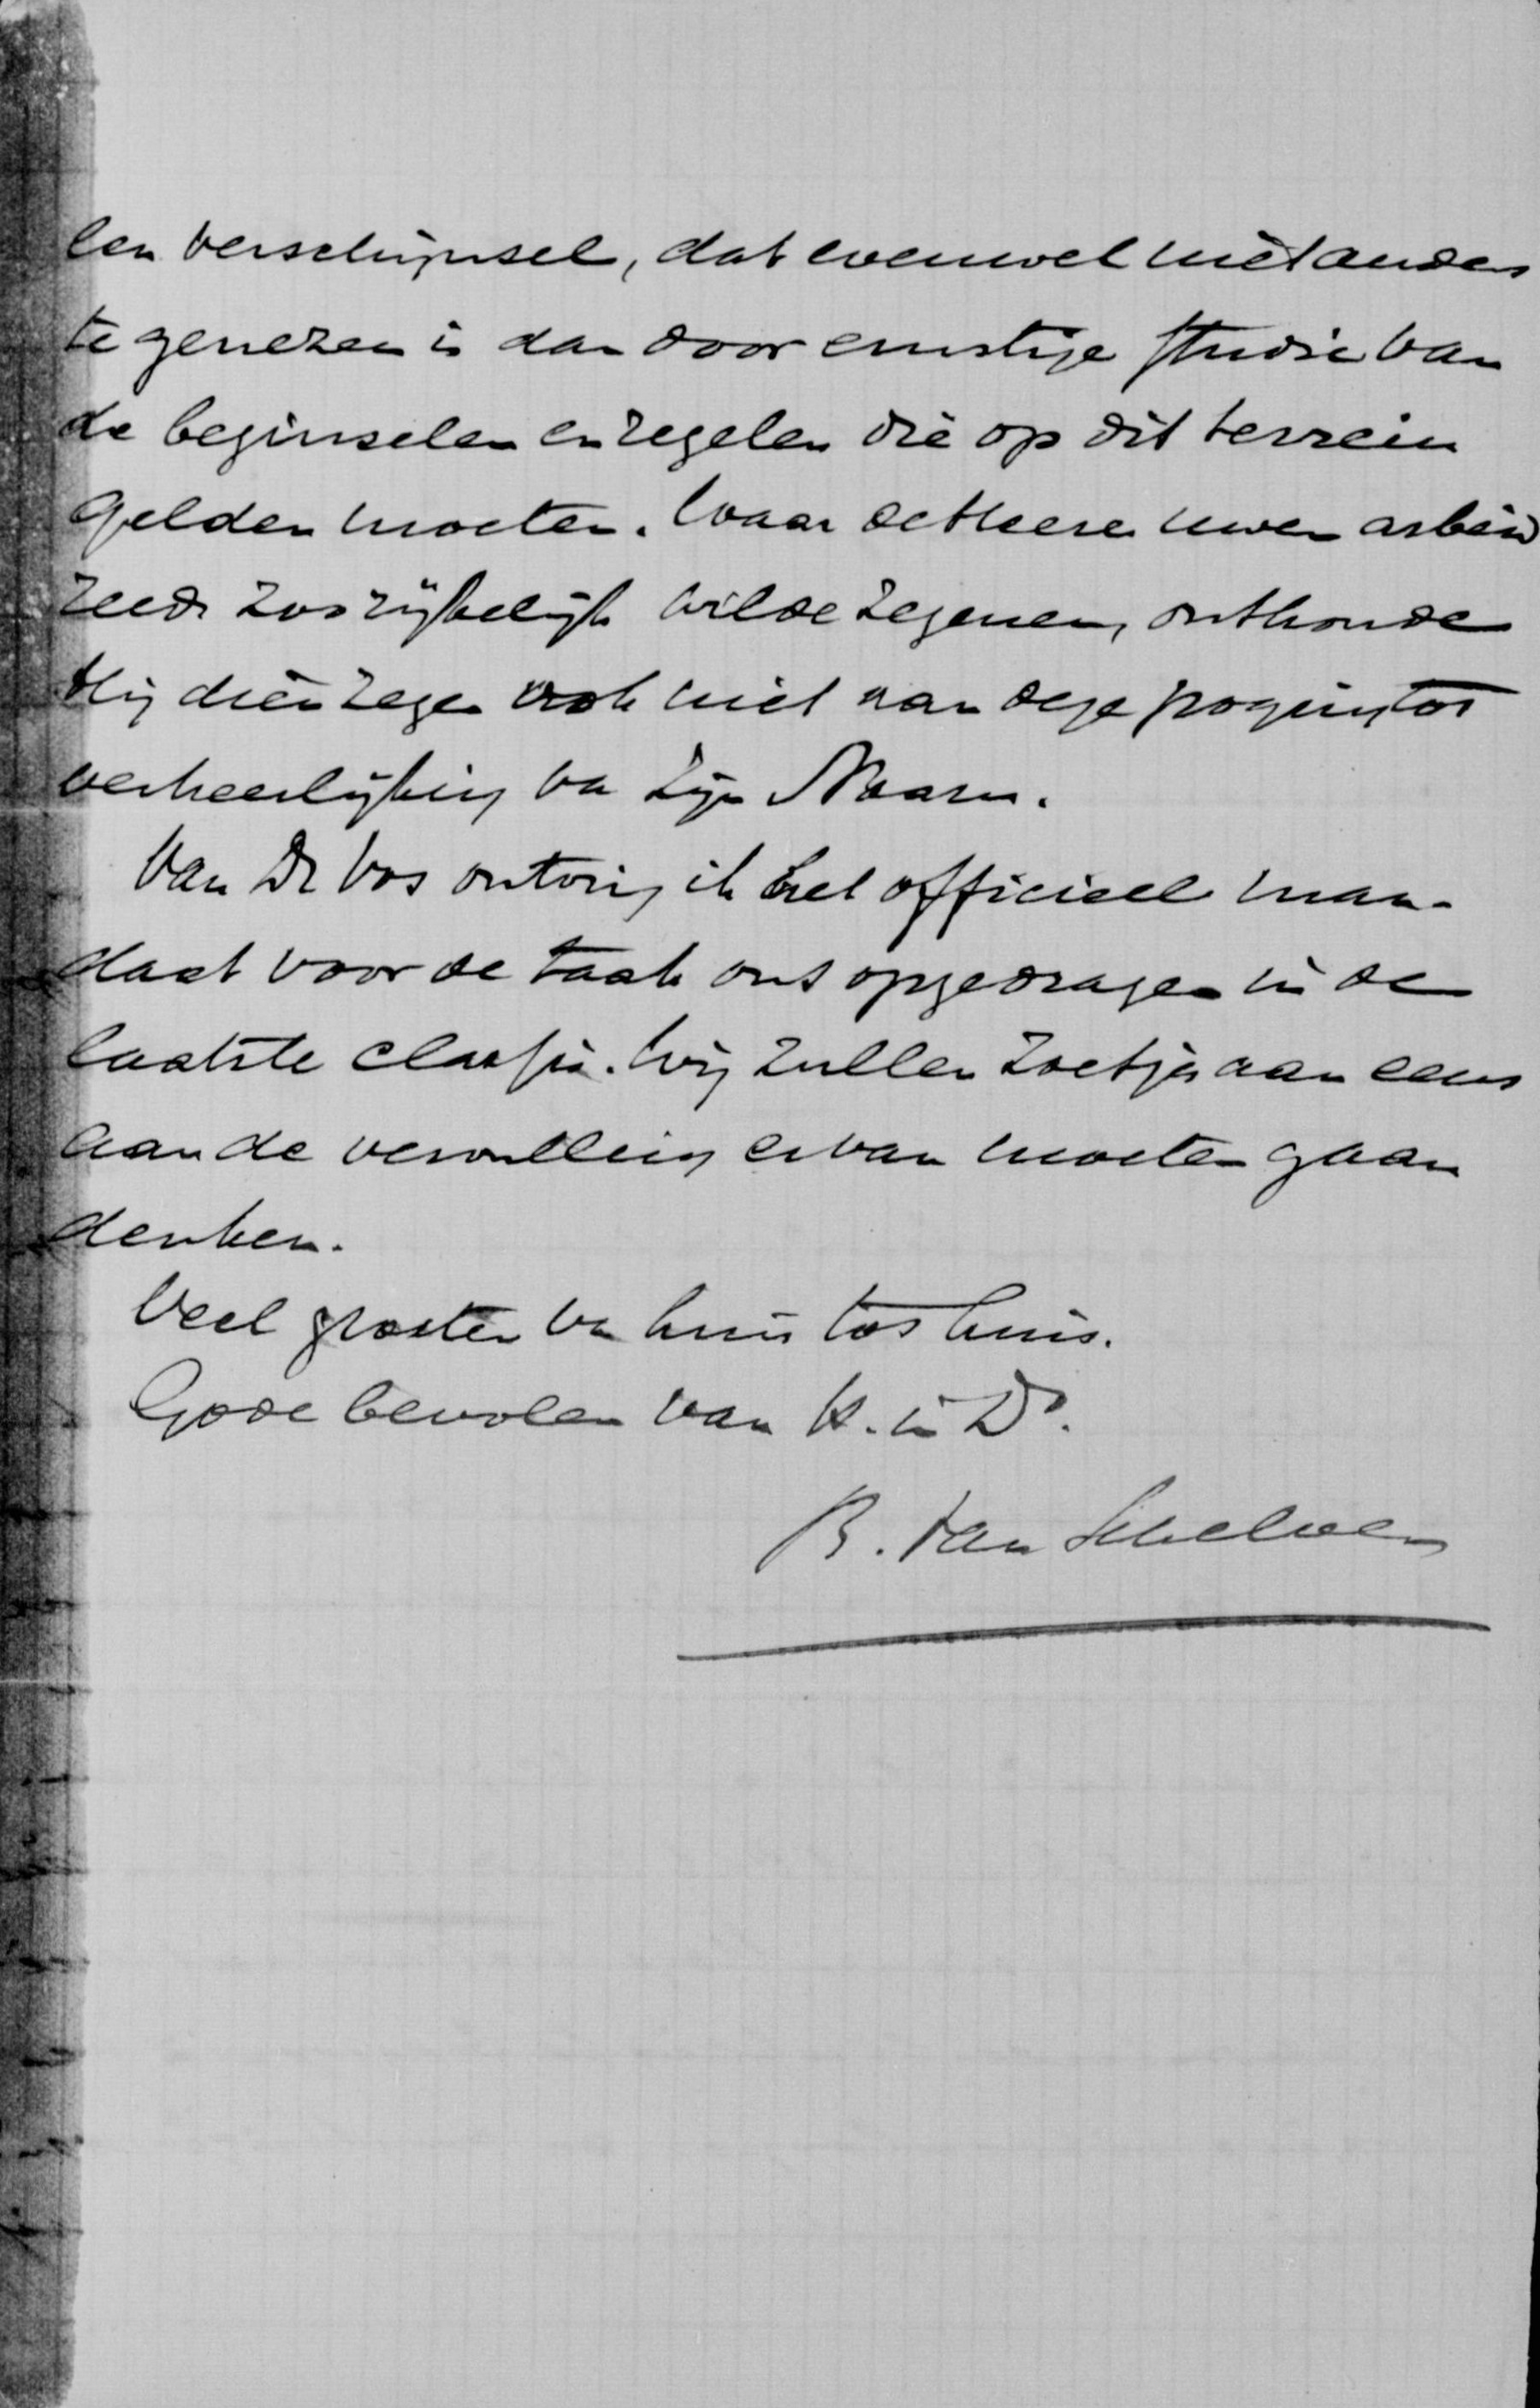 len verschijnsel, dat evenwel niet anders
te genezen is dan door ernstige studie van
de beginselen en regelen die op dit terrein
gelden moeten. Waar de Heere uwen arbeid
reeds zoo rijkelijk wilde zegenen, onthoude
Hij dien zegen ook niet aan deze poging tot
verheerlijking van Zijn Naam.
Van Ds Vos ontving ik het officieel man-
daat voor de taak ons opgedragen in de
laatste classis. Wij zullen zoetjes aan eens
aan de vervulling ervan moeten gaan
denken.
Veel groeten van huis tot huis.
Gode bevolen van U. in Do.
B. van Schelven